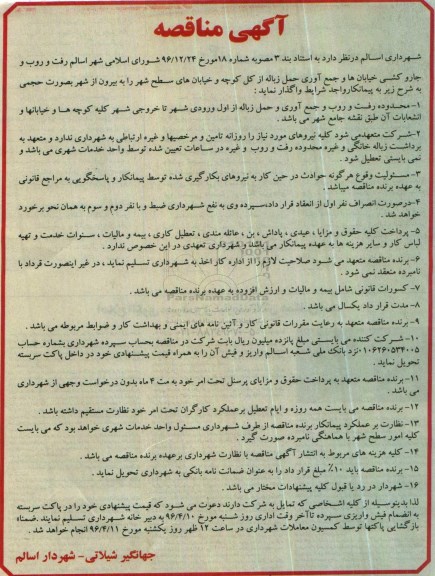 آگهی مناقصه
شهرداری اسالم درنظر دارد به استناد بند ۳ مصوبه شماره ۱۸مورخ ۹۶/۱۲/۲۴ شورای اسلامی شهر اسالم رفت و روب و
جارو کشی خیابان ها و جمع آوری حمل زباله از کل کوچه و خیابان های سطح شهر را به بیرون از شهر بصورت حجمی
به شرح زیر به پیمانکارواجد شرایط واگذار نماید :
۱-محدوده رفت و روب و جمع آوری و حمل زباله از اول ورودی شهر تا خروجی شهر کلیه کوچه ها و خیابانها و
انشعابات آن طبق نقشه جامع شهر می باشد .
۲-شرکت متعهدمی شود کلیه نیروهای مورد نیاز را روزانه تامین و مرخصیها و غیره ارتباطی به شهرداری ندارد و متعهد به
برداشت زباله خانگی و غیره محدوده رفت و روب و غیره در ساعات تعیین شده توسط واحد خدمات شهری می باشد و
نمی بایستی تعطیل شود .
۳-مسئولیت وقوع هرگونه حوادث در حین کار به نیروهای بکارگیری شده توسط پیمانکار و پاسخگویی به مراجع قانونی
به عهده برنده مناقصه میباشد .
۴-درصورت انصراف نفر اول از انعقاد قرار داد،سپرده وی به نفع شهرداری ضبط و با نفر دوم و سوم به همان نحو برخورد
خواهد شد .
۵- پرداخت کلیه حقوق و مزایا ، عیدی ، پاداش ، بن ، عائله مندی ، تعطیل کاری ، بیمه و مالیات ، سنوات خدمت و تهیه
لباس کار و سایر هزینه ها به عهده پیمانکار می باشد و شهرداری تعهدی در این خصوص ندارد .
۶-برنده مناقصه متعهد می شود صلاحیت لازم را از اداره کار اخذ به شهرداری تسلیم نماید ، در غیر اینصورت قرداد با
نامبرده منعقد نمی شود .
۷-کسورات قانونی شامل بیمه و مالیات و ارزش افزوده به عهده برنده مناقصه می باشد .
ParsNamadData
۸-مدت قرار داد یکسال می باشد .
۹- برنده مناقصه متعهد به رعایت مقررات قانونی کار و آئین نامه های ایمنی و بهداشت کار و ضوابط مربوطه می باشد .
۱۰- شرکت کننده می بایستی مبلغ پانزده میلیون ریال بابت شرکت در مناقصه بحساب سپرده شهرداری بشماره حساب
۰۱۰۶۲۶۰۵۳۴۰۰۵نزد بانک ملی شعبه اسالم واریز و فیش آن را به همراه قیمت پیشنهادی خود در داخل پاکت سربسته
تحویل نماید .
۱۱- برنده مناقصه متعهد به پرداخت حقوق و مزایای پرسنل تحت امر خود به مت ۴ ماه بدون درخواست وجهی از شهرداری
می باشد .
۱۲- برنده مناقصه می بایست همه روزه و ایام تعطیل برعملکرد کارگران تحت امر خود نظارت مستقیم داشته باشد .
۱۳- نظارت بر عملکرد پیمانکار برنده مناقصه از طرف شهرداری مسئول واحد خدمات شهری خواهد بود که می بایست
کلیه امور سطح شهر با هماهنگی نامبرده صورت گیرد .
۱۴- کلیه هزینه های مربوط به انتشار آگهی مناقصه با نظارت شهرداری برعهده برنده مناقصه می باشد .
۱۵- برنده مناقصه باید ۱۰٪ مبلغ قرار داد را به عنوان ضمانت نامه بانکی به شهرداری تحویل نماید .
۱۶- شهردار در رد یا قبول کلیه پیشنهادات مختار می باشد .
لذا بدینوسیله از کلیه اشخاصی که تمایل به شرکت دارند دعوت می شود که قیمت پیشنهادی خود را در پاکت سربسته
به انضمام فیش واریزی سپرده تاآخر وقت اداری روز شنبه مورخ ۹۶/۴/۱۰ به دبیر خانه شهرداری تسلیم نمایند .ضمنا؛
بازگشایی پاکتها توسط کمسیون معاملات شهرداری در ساعت ۱۲ ظهر روز یکشنبه مورخ ۹۶/۴/۱۱ انجام خواهد شد .
جهانگیر شیلاتی- شهردار اسالم